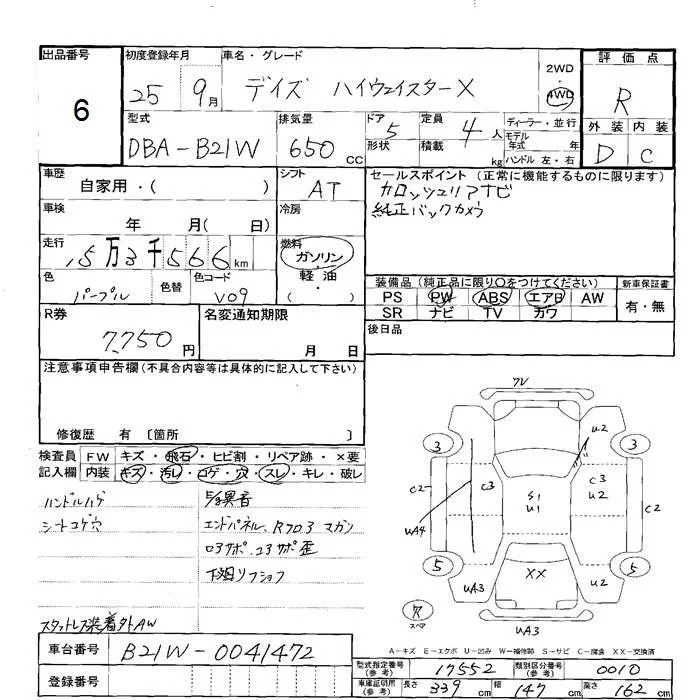 出品番号
6
初度登録年月
25 9月
車名・グレード
デイズ ハイウェイスターX
2WD
・
4WD
評価点
R
外装 内装
D C
型式
DBA-B21W
排気量
650 CC
ドア 5
形状
定員 4 人
積載 kg
ディーラー・並行
モデル
年式 年
ハンドル 左・右
車歴
自家用・( )
シフト
AT
セールスポイント(正常に機能するものに限ります)
カロッツェリアナビ
純正バックカメラ
車検
年 月( 日)
冷房
走行
5万3千566km
燃料
ガソリン
・
軽油
・
( )
色
パープル
色替
色コード
V09
装備品(純正品に限り○をつけてください)
PS PW ABS エアB AW
SR ナビ TV カワ
新車保証書
有・無
R券
7,750円
名変通知期限
月 日
後日品
注意事項申告欄(不具合内容等は具体的に記入して下さい)
修復歴 有 〔箇所 〕
検査員
記入欄
FW キズ・飛石・ヒビ割・リペア跡・×要
内装 キズ・汚レ・コゲ・穴・スレ・キレ・破レ
ハンドルハゲ
シートコゲ穴
異音
エンドパネル、Rフロ3 マガリ
ロ3サポ、コ3サポ歪
下廻リフショク
スタッドレス装着外AW
フレ
3 3
U2
C2 C3 C3
U2 C2
S1
U1
UA4
5 5
XX
UA3 U2
UA3
穴
スペア
A-キズ E-エクボ U-凹み W-補修跡 S-サビ C-腐食 XX-交換済
車台番号
B21W-0041472
登録番号
型式指定番号
(参考)
17552
類別区分番号
(参考)
0010
車庫証明用
(参考)
長さ 339 cm 幅 147 cm 高さ 162 cm